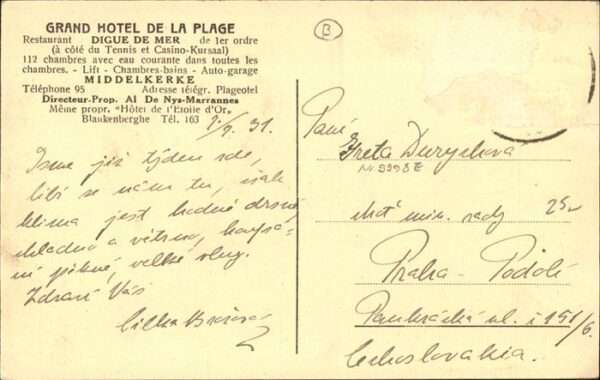 GRAND HOTEL DE LA PLAGE
Restaurant DIGUE DE MER de 1er ordre
(à côté du Tennis et Casino-Kursaal)
112 chambres avec eau courante dans toutes les
chambres. - Lift - Chambres-bains - Auto-garage
MIDDELKERKE
Téléphone 95 Adresse télégr. Plageotel
Directeur-Prop. Al De Nys-Marrannes
Même propr. "Hôtel de l'Etoile d'Or"
Blankenberghe Tél. 163
9. 31.
Jsme již týden zde,
líbí se nám tu, však
klima jest hodně drsné,
chladno a větrno, koupá-
ní pěkné, velké vlny.
Zdraví Vás
Cilka
B
Paní
Greta
choť min. rady
Praha - Podolí
Pankrácká ul. č 151/6.
Čechoslovakia.